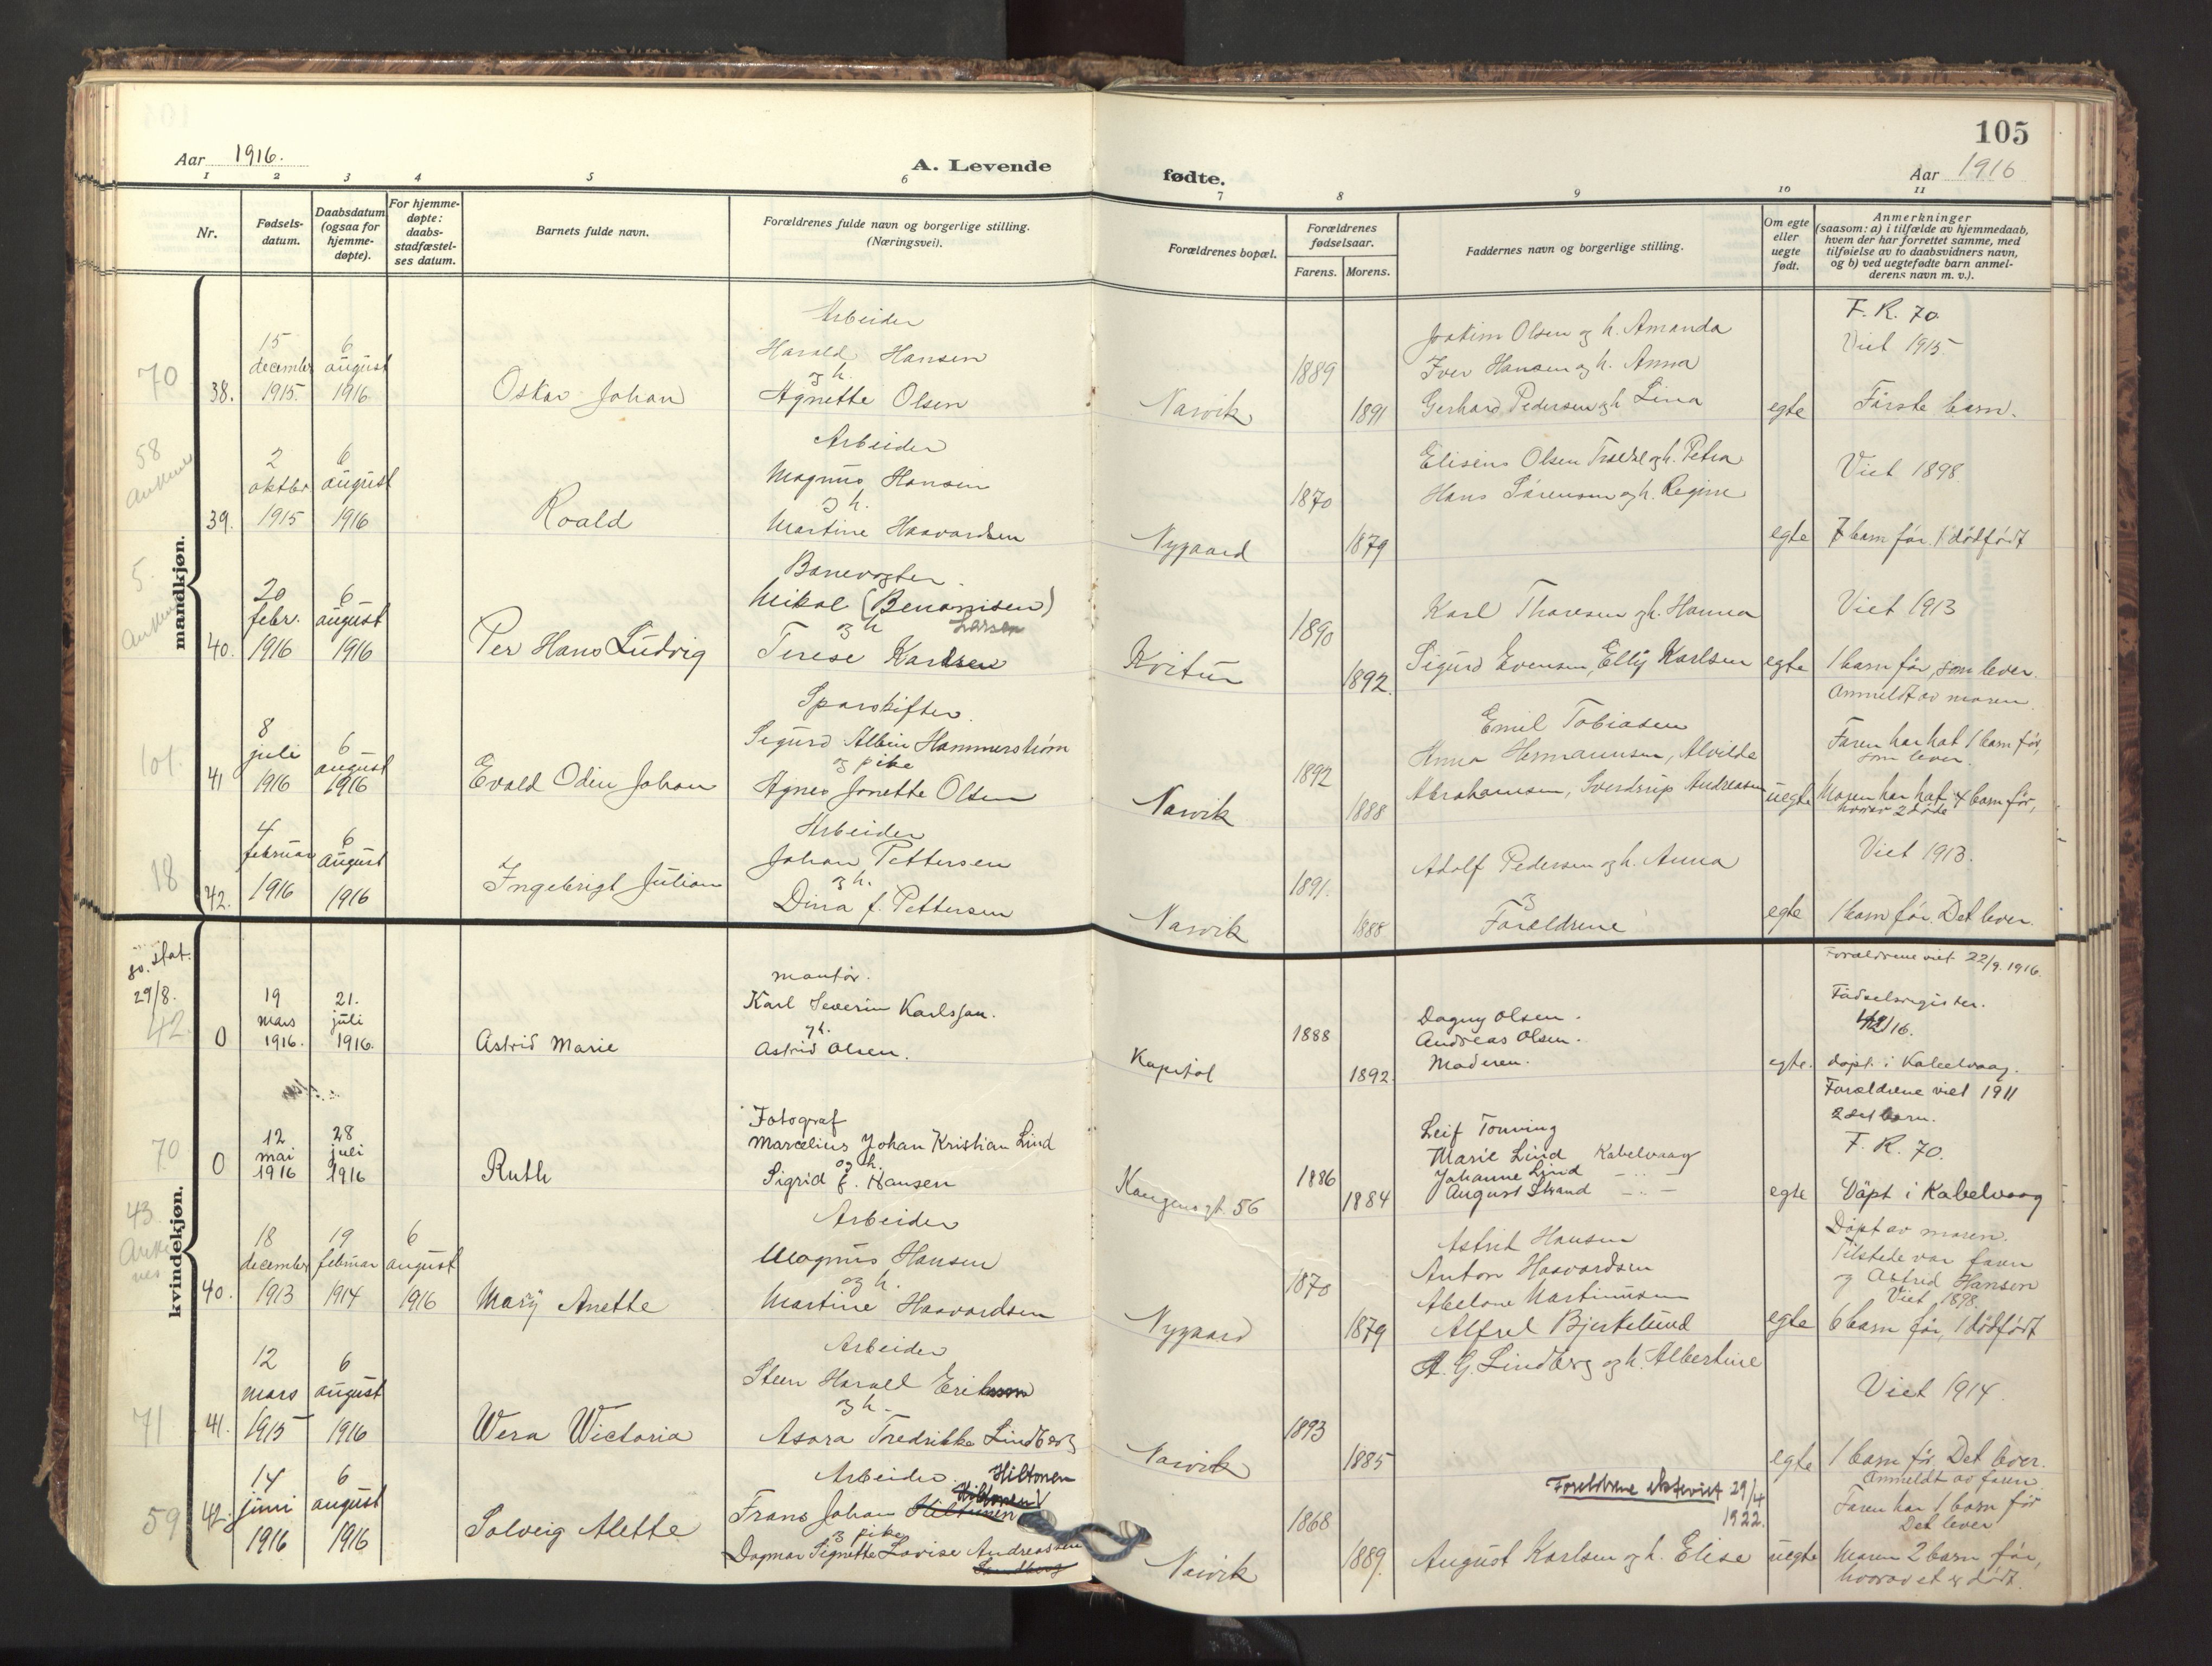 105
Aar 1916.
A. Levende
fødte.
Aar 1916
1 2 3 4 5 6 7 8 9 10 11
Nr.
Fødsels-
datum.
Daabsdatum
(ogsaa for
hjemme-
døpte).
For hjemme-
døpte:
daabs-
stadfæstel-
ses datum.
Barnets fulde navn.
Forældrenes fulde navn og borgerlige stilling.
(Næringsvei).
Forældrenes bopæl.
Forældrenes
fødselsaar.
Farens. Morens.
Faddernes navn og borgerlige stilling.
Om egte
eller
uegte
født.
Anmerkninger
(saasom: a) i tilfælde av hjemmedaab,
hvem der har forrettet samme, med
tilføielse av to daabsvidners navn,
og b) ved uegtefødte barn anmel-
derens navn m. v.).
mandkjøn.
70
38.
15
december
1915
6
august
1916
Oskar Johan
Arbeider
Harald Hansen
og h.
Agnette Olsen
Narvik
1889
1891
Joakim Olsen og h. Amanda
Iver Hansen og h. Anna
Gerhard Pedersen og h. Lina
egte
F. R. 70
Viet 1915
Første barn.
58
39.
2
oktbr
1915
6
august
1916
Roald
Arbeider
Magnus Hansen
og h.
Martine Haavardsen
Nygaard
1870
1879
Elisius Olsen Trældal og h. Petra
Hans Sørensen og h. Regine
egte
Viet 1898
7 barn før. 1 dødfødt
5.
40.
20
febr.
1916
6
august
1916
Per Hans Ludvig
Banevogter.
Mikal (Benonisen)
og h Larsen
Terese Karlsen
Kvitur
1890
1892.
Karl Thoresen og h. Hanna
Sigurd Evensen, Elly Karlsen
egte
Viet 1913
1 barn før, som lever.
101.
41
8
juli
1916
6
august
1916
Evald Odin Johan
Sporskifter.
Sigurd Albin Hammerstrøm
og pike
Agnes Jonette Olsen
Narvik
1892
1888
Emil Tobiasen
Anna Hermannsen, Alvilde
Abrahamsen, Sverdrup Andreasen
uegte
Anmeldt av moren.
Faren har hat 1 barn før,
som lever.
Moren har hat 4 barn før,
hvorav 2 døde
18
42.
4
februar
1916
6
august
1916
Ingebrigt Julian
Arbeider
Johan Pettersen
og h.
Dina f. Pettersen
Narvik
1891.
1888
Adolf Pedersen og h. Anna
og
Forældrene
egte
Viet 1913.
1 barn før. Det lever.
kvindekjøn.
so. stat.
29/8.
42
0
19
mars
1916.
21.
juli
1916.
Astrid Marie
montør.
Karl Severin Karlsson.
og h.
Astrid Olsen.
Kapitol
1888
1892.
Dagny Olsen.
Andreas Olsen.
Moderen.
egte.
Forældrene viet 22/9. 1916.
Fødselsregister.
døpt i Kabelvaag.
70
0
12
mai
1916
28
juli
1916
Ruth
Fotograf
Marcelius Johan Kristian Lind
og h.
Sigrid f. Hansen
Kongensgt. 56
1886
1884
Leif Tonning
Marie Lind Kabelvaag
Johanne Lind — " —
August Strand — " —
egte
Forældrene viet 1911
2det barn.
F. R. 70.
Døpt i Kabelvaag
43.
40.
18
december
1913
19
februar
1914
6
august
1916
Mary Anette
Arbeider
Magnus Hansen
og h.
Martine Haavardsen
Nygaard
1870
1879
Astrid Hansen
Anton Haavardsen
Abelone Martinusen
Alfred Bjerkelund
egte
Døpt av moren.
Tilstede var faren
og Astrid Hansen
Viet 1898.
6 barn før, 1 dødfødt
71
41.
12
mars
1915
6
august
1916
Wera Wictoria
Arbeider
Steen Harald Eriksson
og h.
Asora Fredrikke Lindberg
Narvik
1893
1885
A. G. Lindberg og h. Albertine
egte
Viet 1914.
1 barn før. Det lever.
59
42.
14
juni
1916
6
august
1916
Solveig Alette
Arbeider. Hiltonen
Frans Johan Hiltunen
og pike
Dagmar Signette Lovise Andreassen
Sandberg
Narvik
1868
1889.
Foreldrene ektevict 29/4
1922.
August Karlsen og h. Elise
uegte
Anmeldt av faren
Faren har 1 barn før
Det lever
Moren 2 barn før,
hvorav et er dødt.